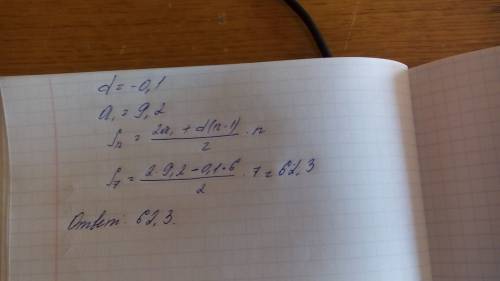 d = -0,1
a₁ = 9,2
Sₙ = (2a₁ + d(n-1))/2 · n
S₇ = (2·9,2 - 0,1·6)/2 · 7 = 62,3
Ответ: 62,3.